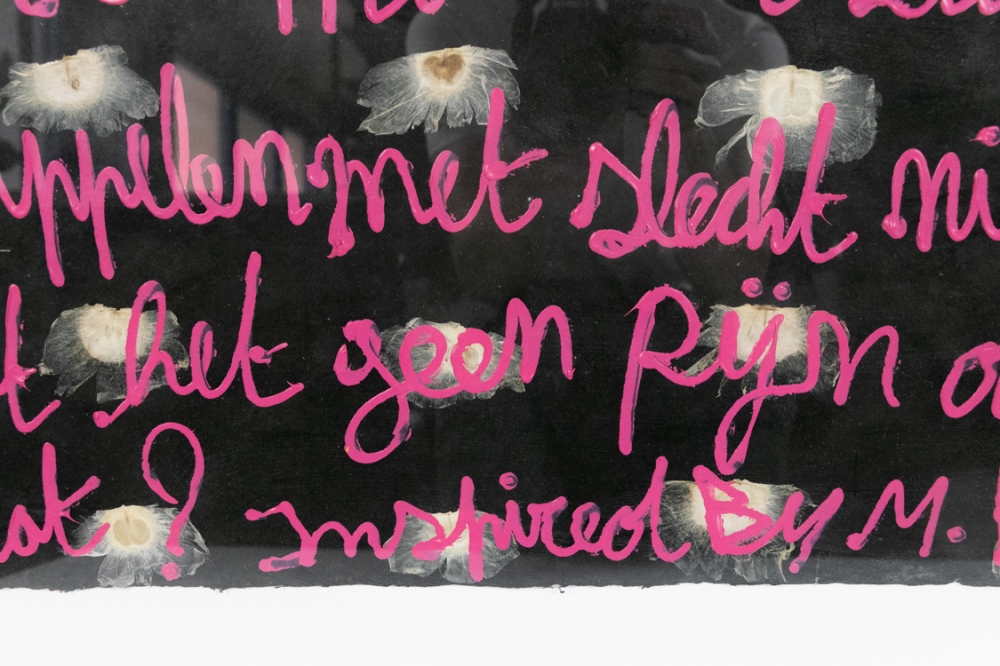 ppelen met slecht ni
t het geen Pijn o
k ? inspired By M.